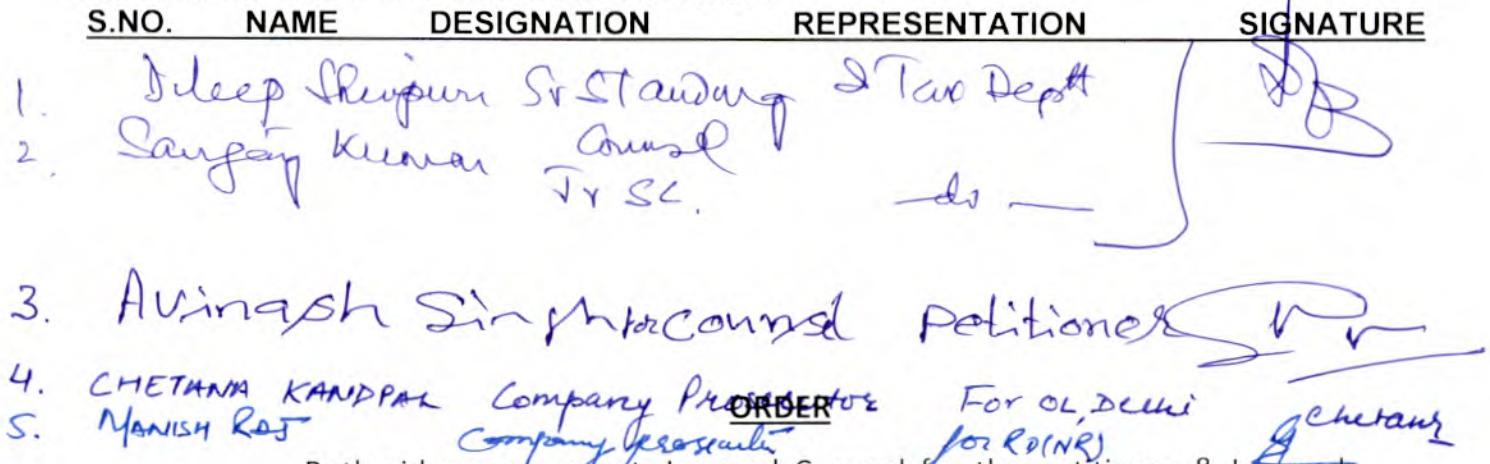 S.NO. NAME DESIGNATION REPRESENTATION SIGNATURE
1. Dileep Shivpuri Sr Standing I Tax Deptt
2. Sanjay Kumar Counsel
Jr SC. —do—
3. Avinash Singh counsel Petitioner
4. CHETANA KANDPAL Company Prosecutor For OL, Delhi Chetana
ORDER
5. MANISH RAJ Company prosecutor for RD(NR)